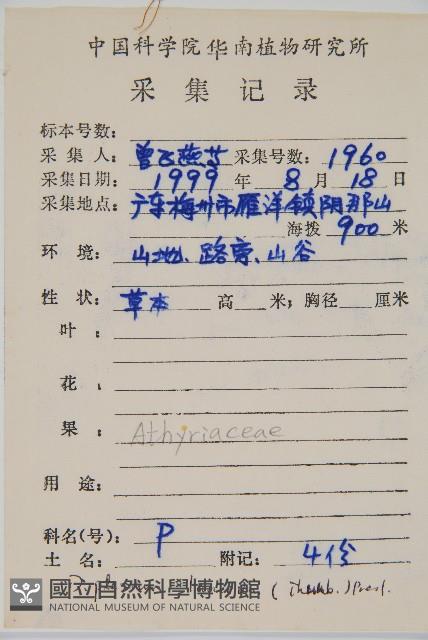 中国科学院华南植物研究所
采集记录
标本号数：
采集人：曾飞燕等 采集号数：1960
采集日期：1999年8月18日
采集地点：广东梅州市雁洋镇阴那山
海拨900米
环境：山地、路旁、山谷
性状：草本 高 米；胸径 厘米
叶：
花：
果：Athyriaceae
用途：
科名(号)：P
土名： 附记：4份
(Thunb.) Presl.
國立自然科學博物館
NATIONAL MUSEUM OF NATURAL SCIENCE